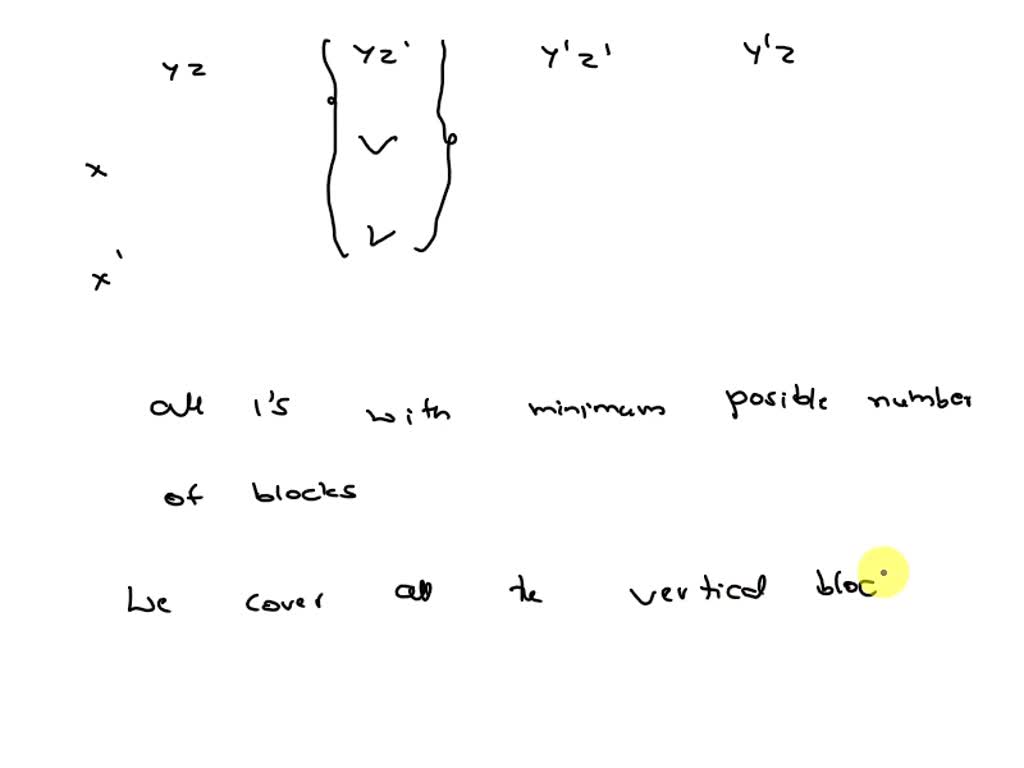 yz yz' y'z' y'z
x
x'
all 1's with minimum posible number
of blocks
We cover all the vertical bloc